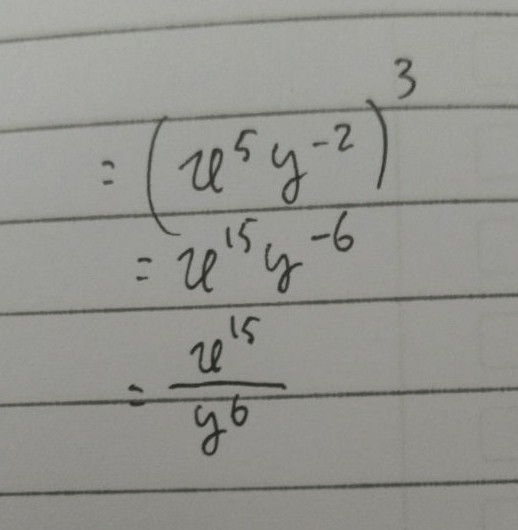 = (x⁵y⁻²)³
= x¹⁵y⁻⁶
= x¹⁵/y⁶